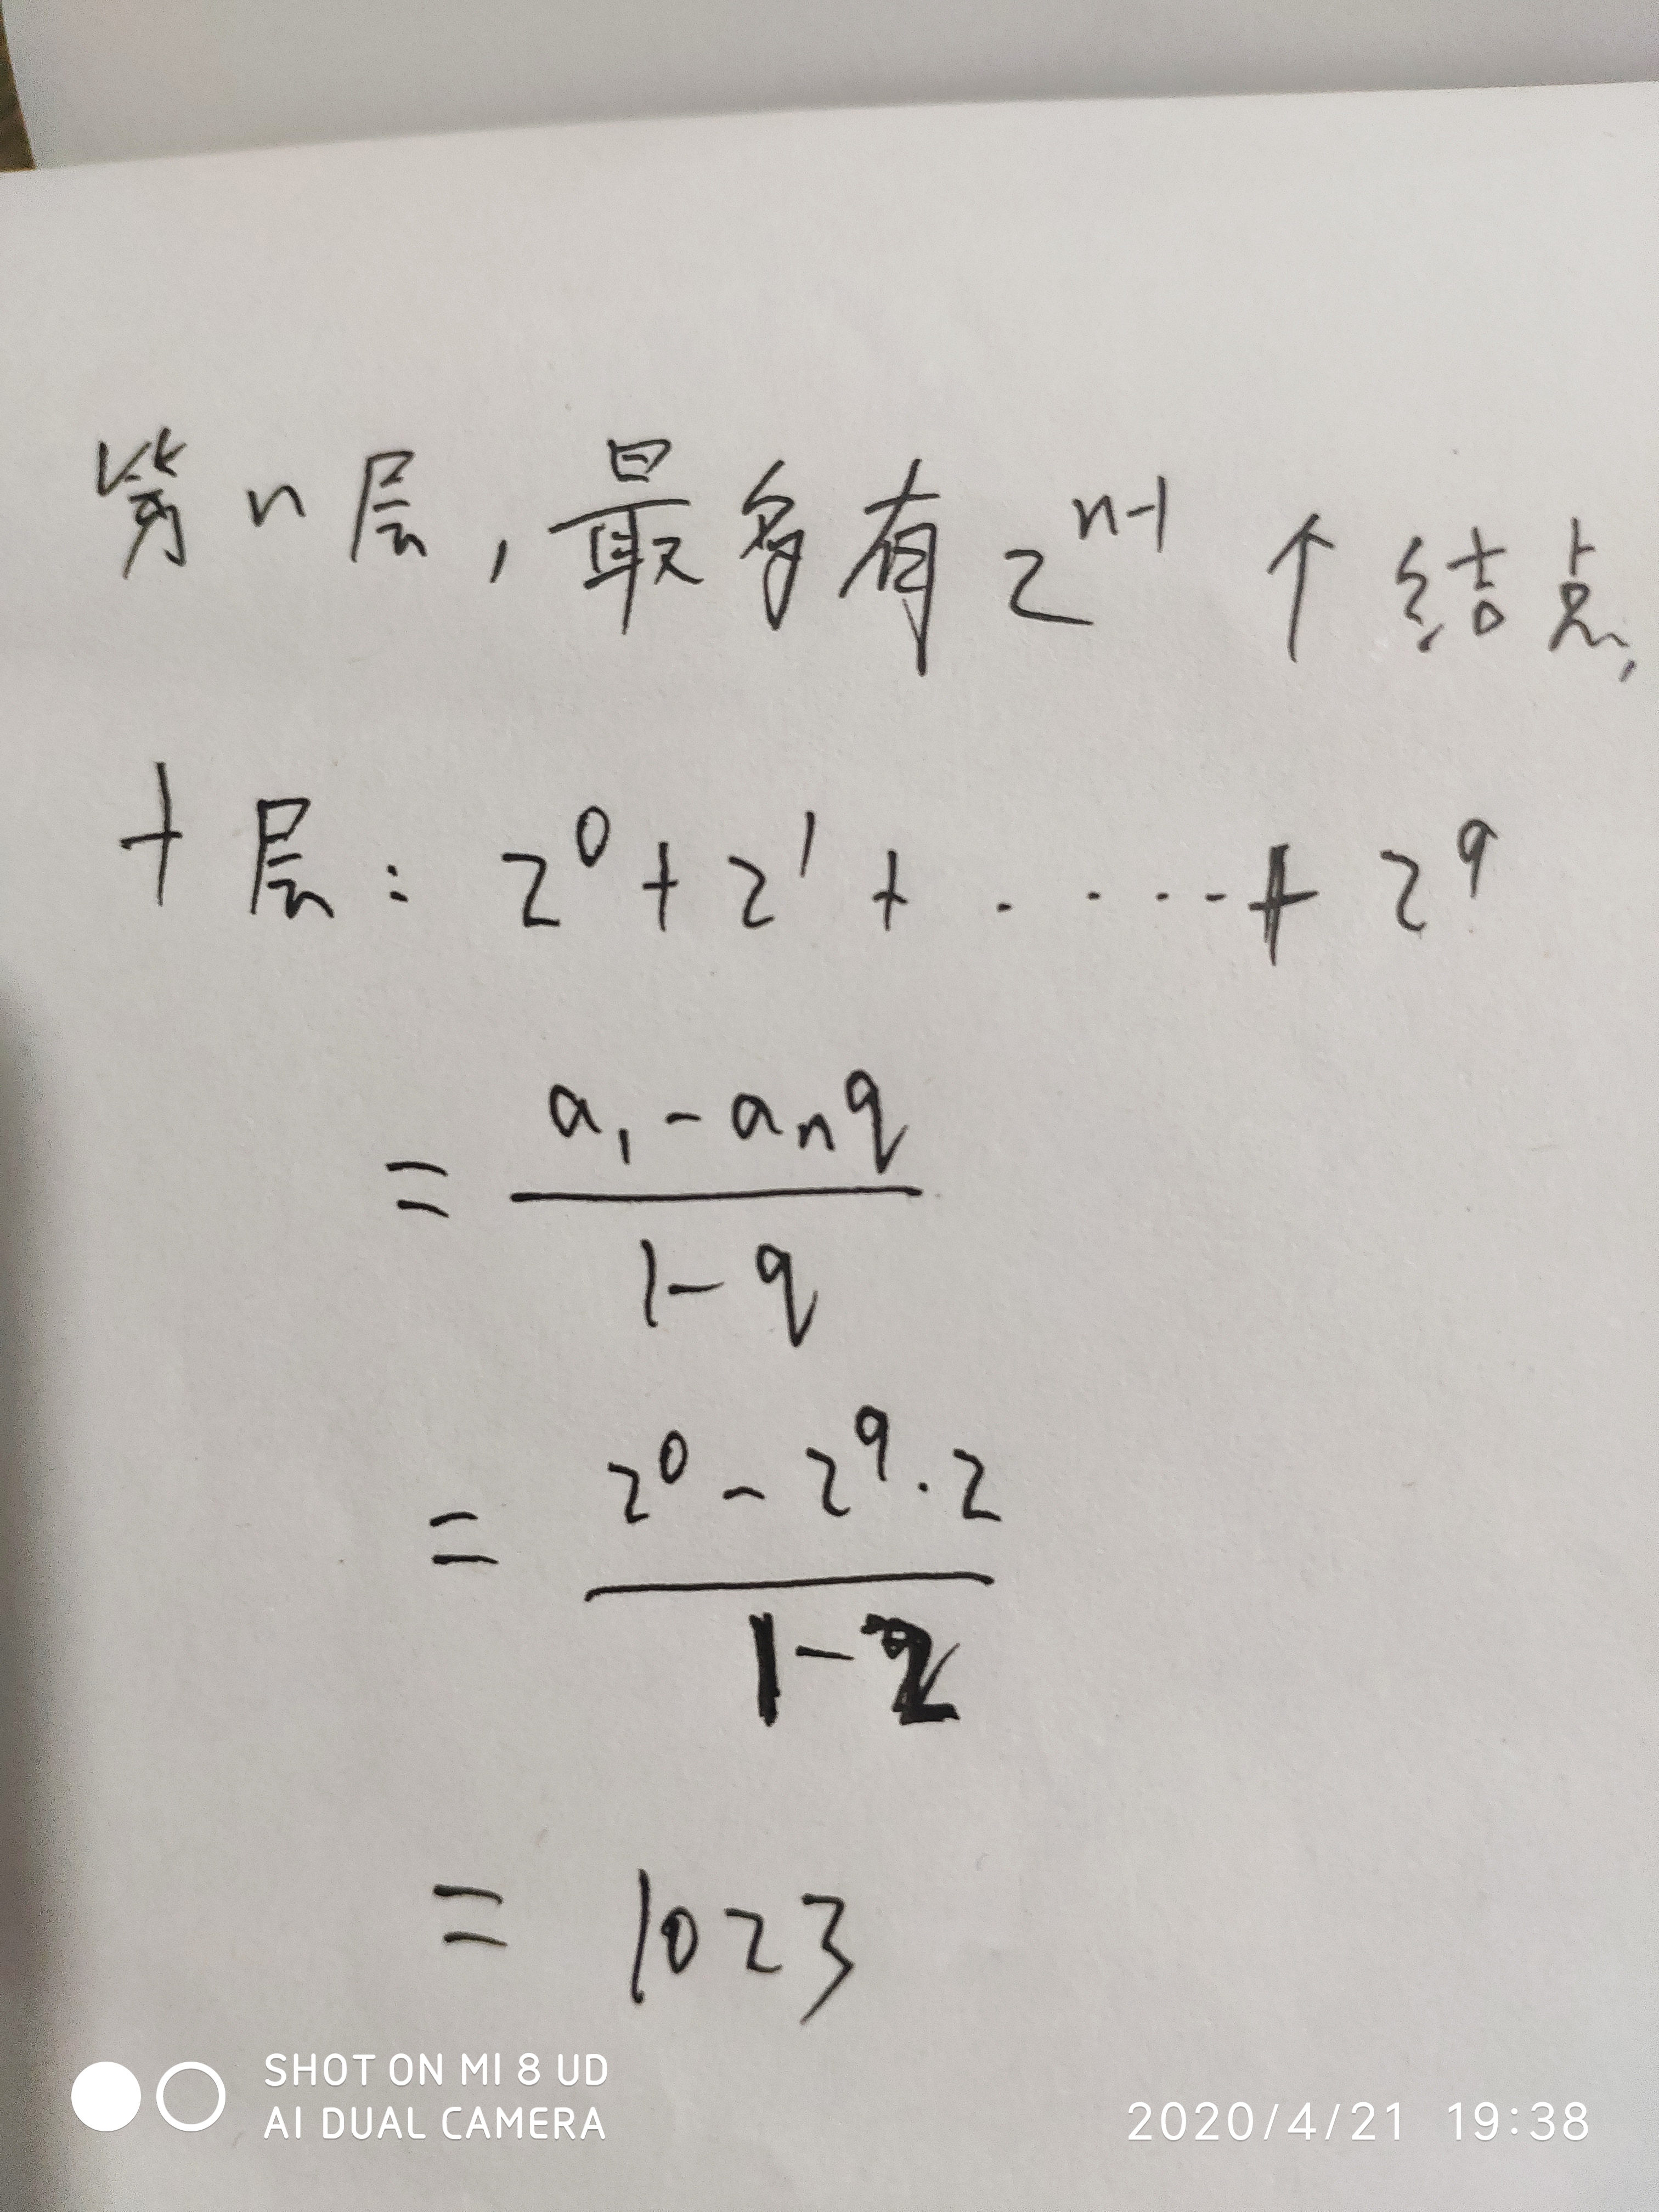 第n层,最多有2^{n-1}个结点,
十层: 2^0+2^1+.....+2^9
= \frac{a_1-a_nq}{1-q}
= \frac{2^0-2^9·2}{1-2}
= 1023
SHOT ON MI 8 UD
AI DUAL CAMERA
2020/4/21 19:38